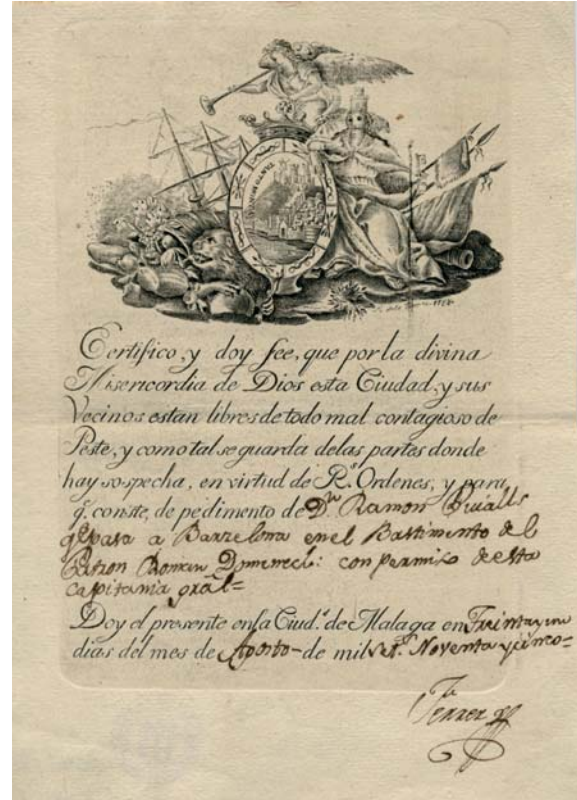 TANTO MONTA
Certifico, y doy fee, que por la divina
Misericordia de Dios esta Ciudad, y sus
Vecinos estan libres de todo mal contagioso de
Peste, y como tal se guarda delas partes donde
hay sospecha, en virtud de R.s Ordenes, y para
q.e conste, de pedimento de Dn Ramon
qe pasa a Barzelona en el Bastimento del
Patron Roman Domenech: con permiso de esta
Capitania gral=
Doy el presente enla Ciud.d de Malaga en Treinta y un
dias del mes de Agosto- de mil set.s Noventa y cinco=
Ferrer